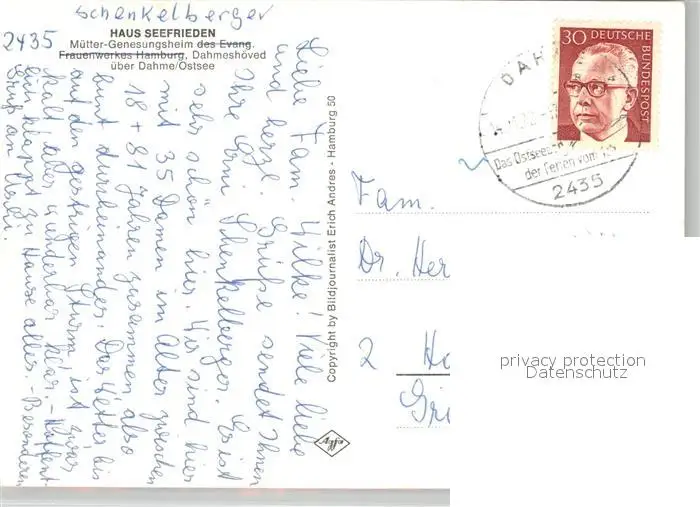 Schenkelberger
HAUS SEEFRIEDEN
2435
Mütter-Genesungsheim des Evang.
Frauenwerkes Hamburg, Dahmeshöved
über Dahme/Ostsee
Liebe Fam. Hilke! Viele liebe
und herzl. Grüße sendet Ihnen
Ihre Erni Schenkelberger. Es ist
sehr schön hier. Wir sind hier
mit 35 Damen im Alter zwischen
18 + 81 Jahren zusammen also
bunt durcheinander. Das Wetter bis
auf den gestrigen Sturm ist zwar
kalt aber wunderbar klar. - Hoffent-
lich klappt zu Hause alles. - Besonderen
Gruß an
Copyright by Bildjournalist Erich Andres - Hamburg 50
Agfa
30 DEUTSCHE
BUNDESPOST
DAH
Das Ostseebad
der Ferien vom
2435
Fam.
Dr. Her
2 Ha
Gri
privacy protection
Datenschutz